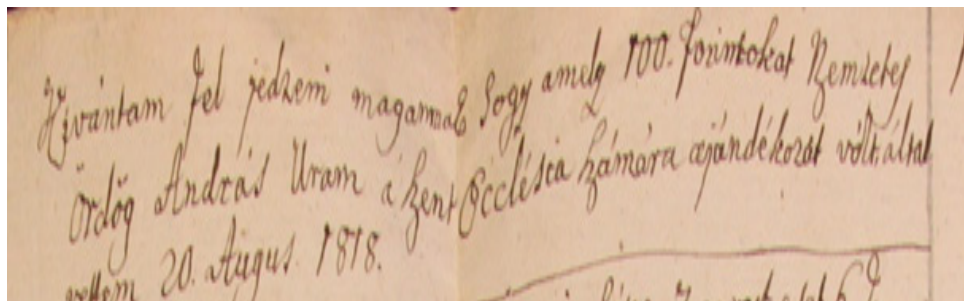 Kivántam fel jedzeni magamnak hogy amely 100. forintokat Nemzetes
Ördög András Uram á Szent Ecclésia számára ajándékozot vólt által
vettem 20. Augus. 1818.